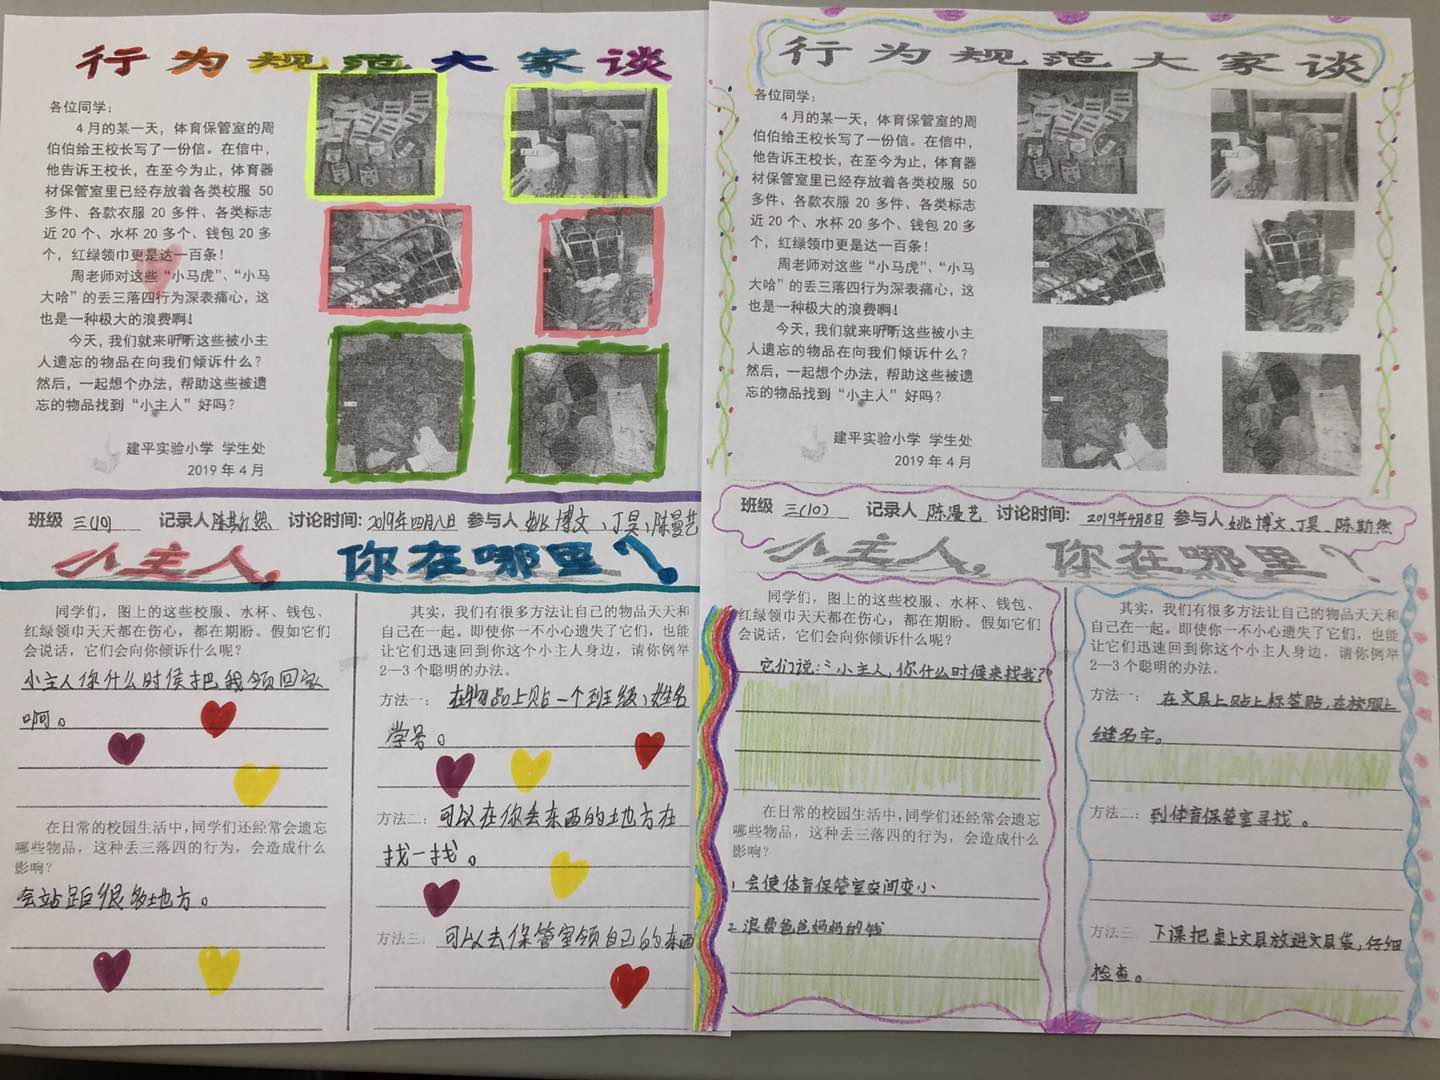 行为规范大家谈
各位同学：
4月的某一天，体育保管室的周
伯伯给王校长写了一份信。在信中，
他告诉王校长，在至今为止，体育器
材保管室里已经存放着各类校服 50
多件、各款衣服 20 多件、各类标志
近 20 个、水杯 20 多个、钱包 20 多
个，红绿领巾更是达一百条！
周老师对这些“小马虎”、“小马
大哈”的丢三落四行为深表痛心，这
也是一种极大的浪费啊！
今天，我们就来听听这些被小主
人遗忘的物品在向我们倾诉什么？
然后，一起想个办法，帮助这些被遗
忘的物品找到“小主人”好吗？
建平实验小学 学生处
2019 年 4 月
班级 三(10) 记录人 陈斯然 讨论时间：2019年四月八日 参与人 姚博文、丁昊、陈曼艺
小主人，你在哪里？
同学们，图上的这些校服、水杯、钱包、
红绿领巾天天都在伤心，都在期盼。假如它们
会说话，它们会向你倾诉什么呢？
小主人你什么时候把我领回家
啊。
在日常的校园生活中，同学们还经常会遗忘
哪些物品，这种丢三落四的行为，会造成什么
影响？
会站距很多地方。
其实，我们有很多方法让自己的物品天天和
自己在一起。即使你一不小心遗失了它们，也能
让它们迅速回到你这个小主人身边，请你例举
2—3 个聪明的办法。
方法一：在物品上贴一个班级、姓名
学号。
方法二：可以在你丢东西的地方在
找一找。
方法三：可以去保管室领自己的东西
行为规范大家谈
各位同学：
4月的某一天，体育保管室的周
伯伯给王校长写了一份信。在信中，
他告诉王校长，在至今为止，体育器
材保管室里已经存放着各类校服 50
多件、各款衣服 20 多件、各类标志
近 20 个、水杯 20 多个、钱包 20 多
个，红绿领巾更是达一百条！
周老师对这些“小马虎”、“小马
大哈”的丢三落四行为深表痛心，这
也是一种极大的浪费啊！
今天，我们就来听听这些被小主
人遗忘的物品在向我们倾诉什么？
然后，一起想个办法，帮助这些被遗
忘的物品找到“小主人”好吗？
建平实验小学 学生处
2019 年 4 月
班级 三(10) 记录人 陈漫艺 讨论时间：2019年4月8日 参与人 姚博文、丁昊、陈斯然
小主人，你在哪里？
同学们，图上的这些校服、水杯、钱包、
红绿领巾天天都在伤心，都在期盼。假如它们
会说话，它们会向你倾诉什么呢？
它们说：“小主人，你什么时候来找我？
在日常的校园生活中，同学们还经常会遗忘
哪些物品，这种丢三落四的行为，会造成什么
影响？
1. 会使体育保管室空间变小
2. 浪费爸爸妈妈的钱
其实，我们有很多方法让自己的物品天天和
自己在一起。即使你一不小心遗失了它们，也能
让它们迅速回到你这个小主人身边，请你例举
2—3 个聪明的办法。
方法一：在文具上贴上标签贴，在校服上
缝名字。
方法二：到体育保管室寻找。
方法三：下课把桌上文具放进文具袋，仔细
检查。